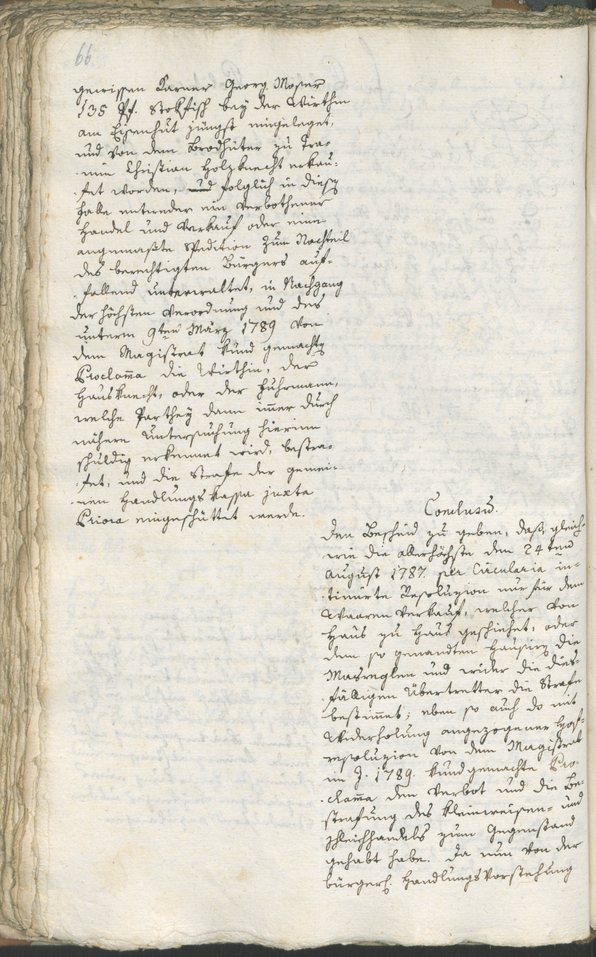 66.
gewissen Karner Georg Moser
135 Pf. Stokfisch bey der Wirthin
am Eisenhut jüngst eingeleget,
und von dem Brodhüter zu Tra-
min Christian Holzknecht erkau-
fet worden, und folglich in diese
habe entweder ein verbothener
Handel und Verkauf oder eine
angemaßte Spedition zum Nachteil
des berechtigten Bürgers auf-
fallend unterwaltet, in Nachgang
der höchsten Verordnung und des
unterm 9ten März 1789 von
dem Magistrat kund gemachte
Proclama die Wirthin, der
Hausknecht, oder der Fuhrmann,
welche Parthey dann imer durch
nähere Untersuchung hierinn
schuldig erkennet wird, bestra-
fet, und die Strafe der gemei-
nen Handlungskassa juxta
Priora eingeschüttet werde.
Conclusū.
Den Bescheid zu geben, daß, gleich-
wie die allerhöchste den 24ten
August 1787 per Circularia in-
timirte Resoluzion nur für den
Waaren Verkauf, welcher von
Haus zu Haus geschiehet, oder
dem so genandten Hausiren die
Maßreglen und wider die dies-
fälligen Übertretter die Strafe
bestimet; eben so auch do mit
Widerholung angezogener Hof-
resoluzion von dem Magistrat
im J. 1789. kundgemachte Pro-
clama den Verbot und die Be-
strafung des kleinweisen- und
Schleichhandels zum Gegenstand
gehabt habe. Da nun von der
bürgerl. Handlungsvorstehung